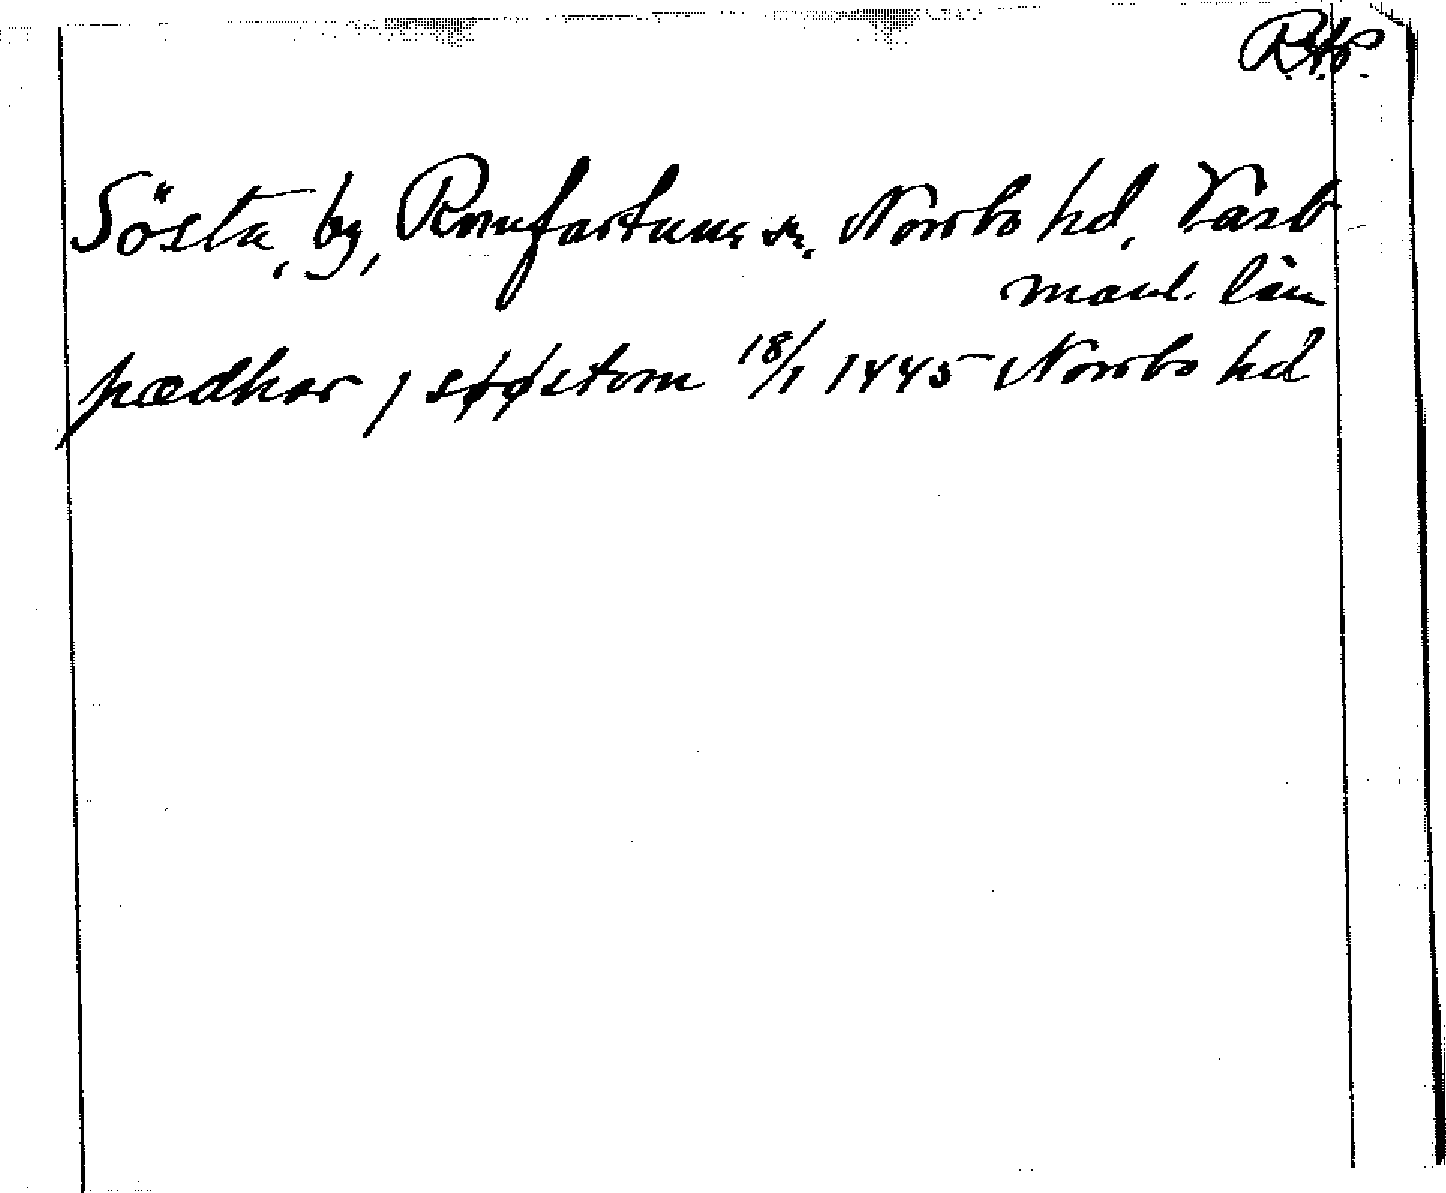 R.Ap.
Sösta, by, Romfartuna sn. Norrbo hd, Västmanl. län
pædhar j søøstom 18/1 1445 Norrbo hd